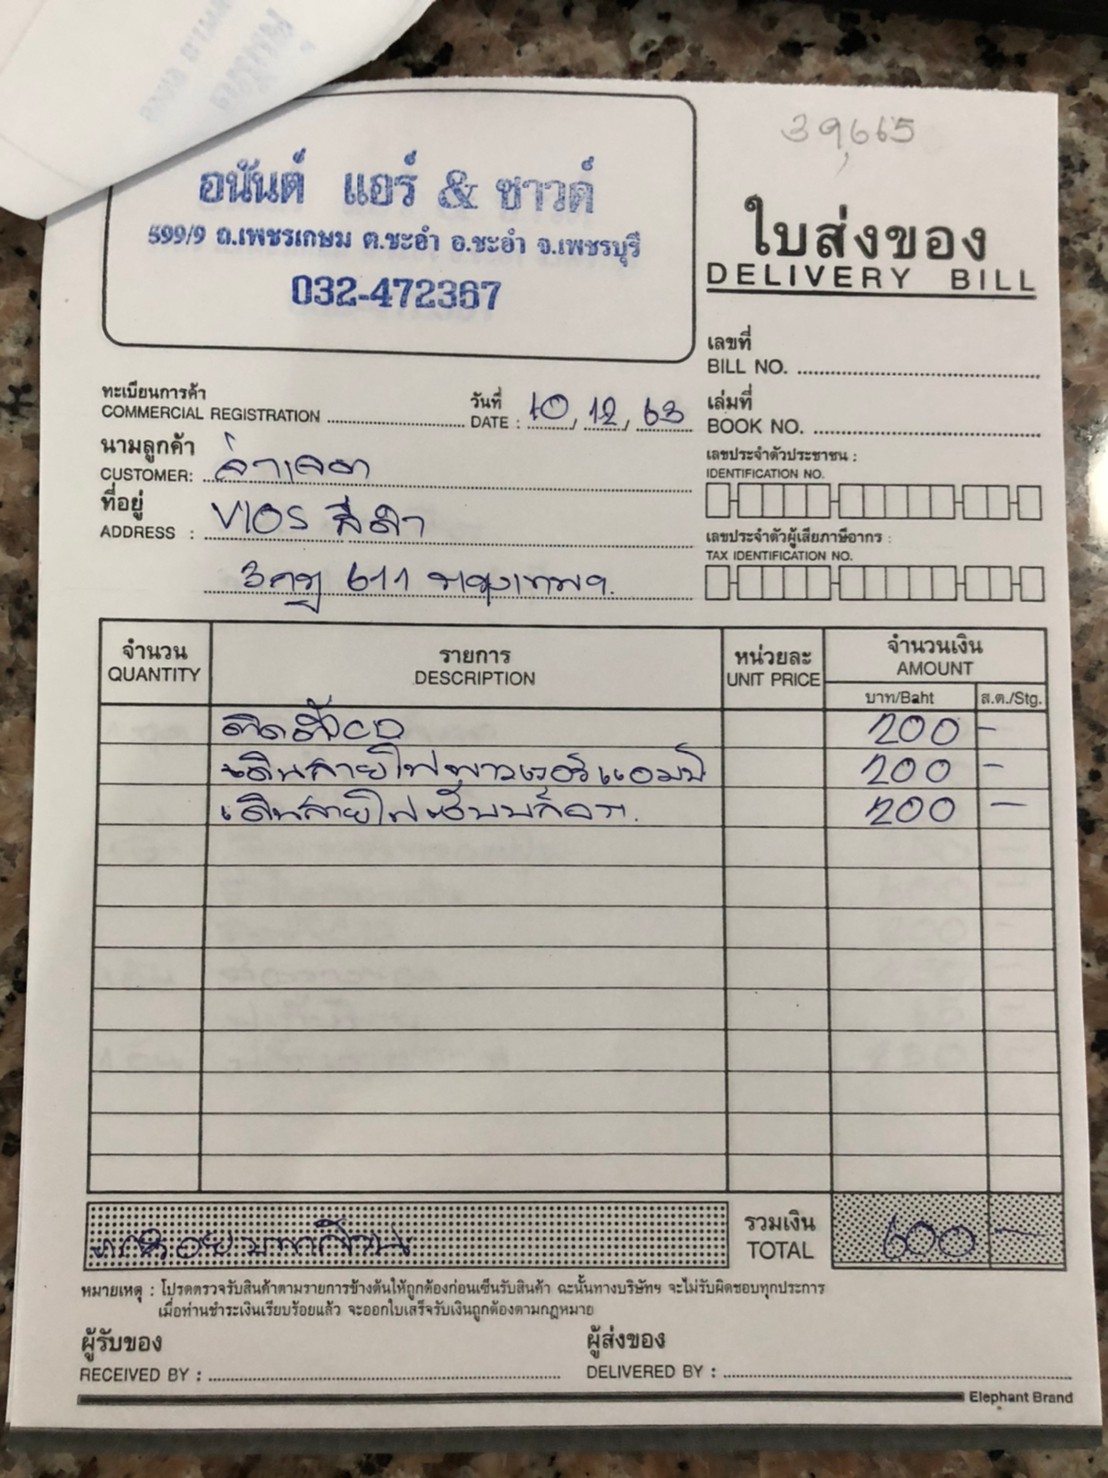 39,665
อนันต์ แอร์ & ซาวด์
599/9 ถ.เพชรเกษม ต.ชะอำ อ.ชะอำ จ.เพชรบุรี
032-472367
ใบส่งของ
DELIVERY BILL
เลขที่
BILL NO.
ทะเบียนการค้า
COMMERCIAL REGISTRATION
วันที่
DATE : 10, 12, 63
เล่มที่
BOOK NO.
นามลูกค้า
CUSTOMER:
เลขประจำตัวประชาชน :
IDENTIFICATION NO.
ที่อยู่
ADDRESS : VIOS สีดำ
เลขประจำตัวผู้เสียภาษีอากร :
TAX IDENTIFICATION NO.
611 กรุงเทพฯ
จำนวน
QUANTITY
รายการ
DESCRIPTION
หน่วยละ
UNIT PRICE
จำนวนเงิน
AMOUNT
บาท/Baht
ส.ต./Stg.
ติดตั้งCD 200 -
เดินสายไฟพาวเวอร์แอมป์ 200 -
เดินสายไฟซับบล็อก. 200 -
หกร้อยบาทถ้วน
รวมเงิน
TOTAL
600 -
หมายเหตุ : โปรดตรวจรับสินค้าตามรายการข้างต้นให้ถูกต้องก่อนเซ็นรับสินค้า ฉะนั้นทางบริษัทฯ จะไม่รับผิดชอบทุกประการ
เมื่อท่านชำระเงินเรียบร้อยแล้ว จะออกใบเสร็จรับเงินถูกต้องตามกฎหมาย
ผู้รับของ
RECEIVED BY :
ผู้ส่งของ
DELIVERED BY :
Elephant Brand